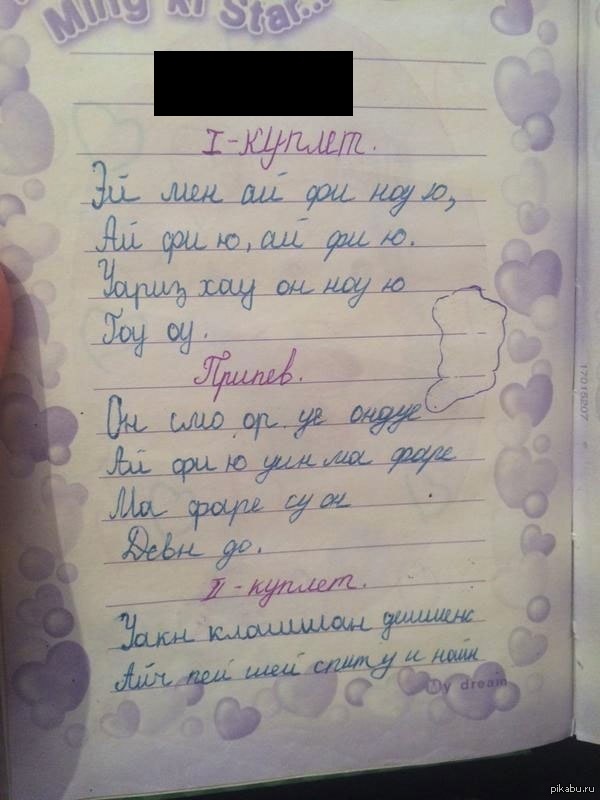 Ming ki Star...
I-куплет.
Эй мен ай фи ноу ю,
Ай фи ю, ай фи ю.
Уариз хау он ноу ю
Гоу оу.
Припев.
Он смо ор уе ондуе
Ай фи ю уин ма фаре
Ма фаре су он
Девн до.
II-куплет.
Уакн клашшан дешшенс
Айч пей шей спиту и найн
My dream
17015207
pikabu.ru